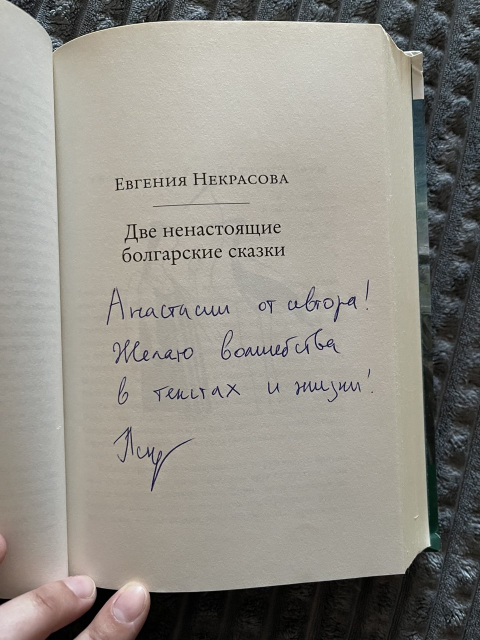 Евгения Некрасова
Две ненастоящие
болгарские сказки
Анастасии от автора!
Желаю волшебства
в текстах и жизни!